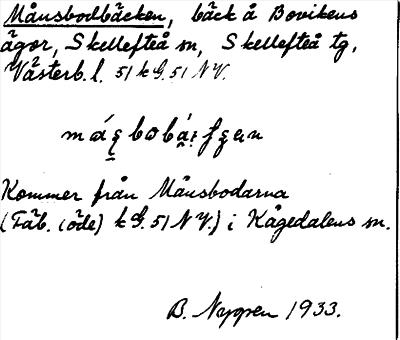 Månsbodbäcken, bäck å Bovikens
ägor, Skellefteå sn, Skellefteå tg,
Västerb. l. 51 k G. 51 NV.
Kommer från Månsbodarna
(Fäb. (öde) k G. 51 NV.) i Kågedalens sn.
B. Nygren 1933.